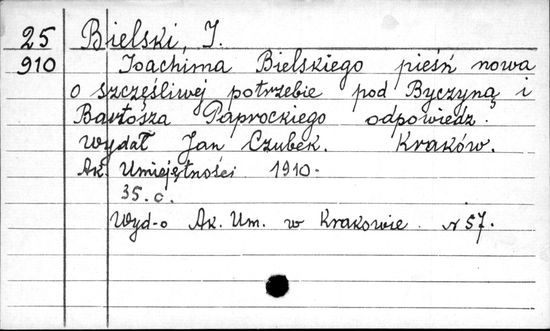 25 Bielski, J.
910 Joachima Bielskiego pieśń nowa
o szczęśliwej potrzebie pod Byczyną i
Bartosza Paprockiego odpowiedz.
Wydał Jan Czubek. Kraków.
Ak. Umiejętności 1910.
35. c.
Wyd-o Ak. Um. w Krakowie. N 57.